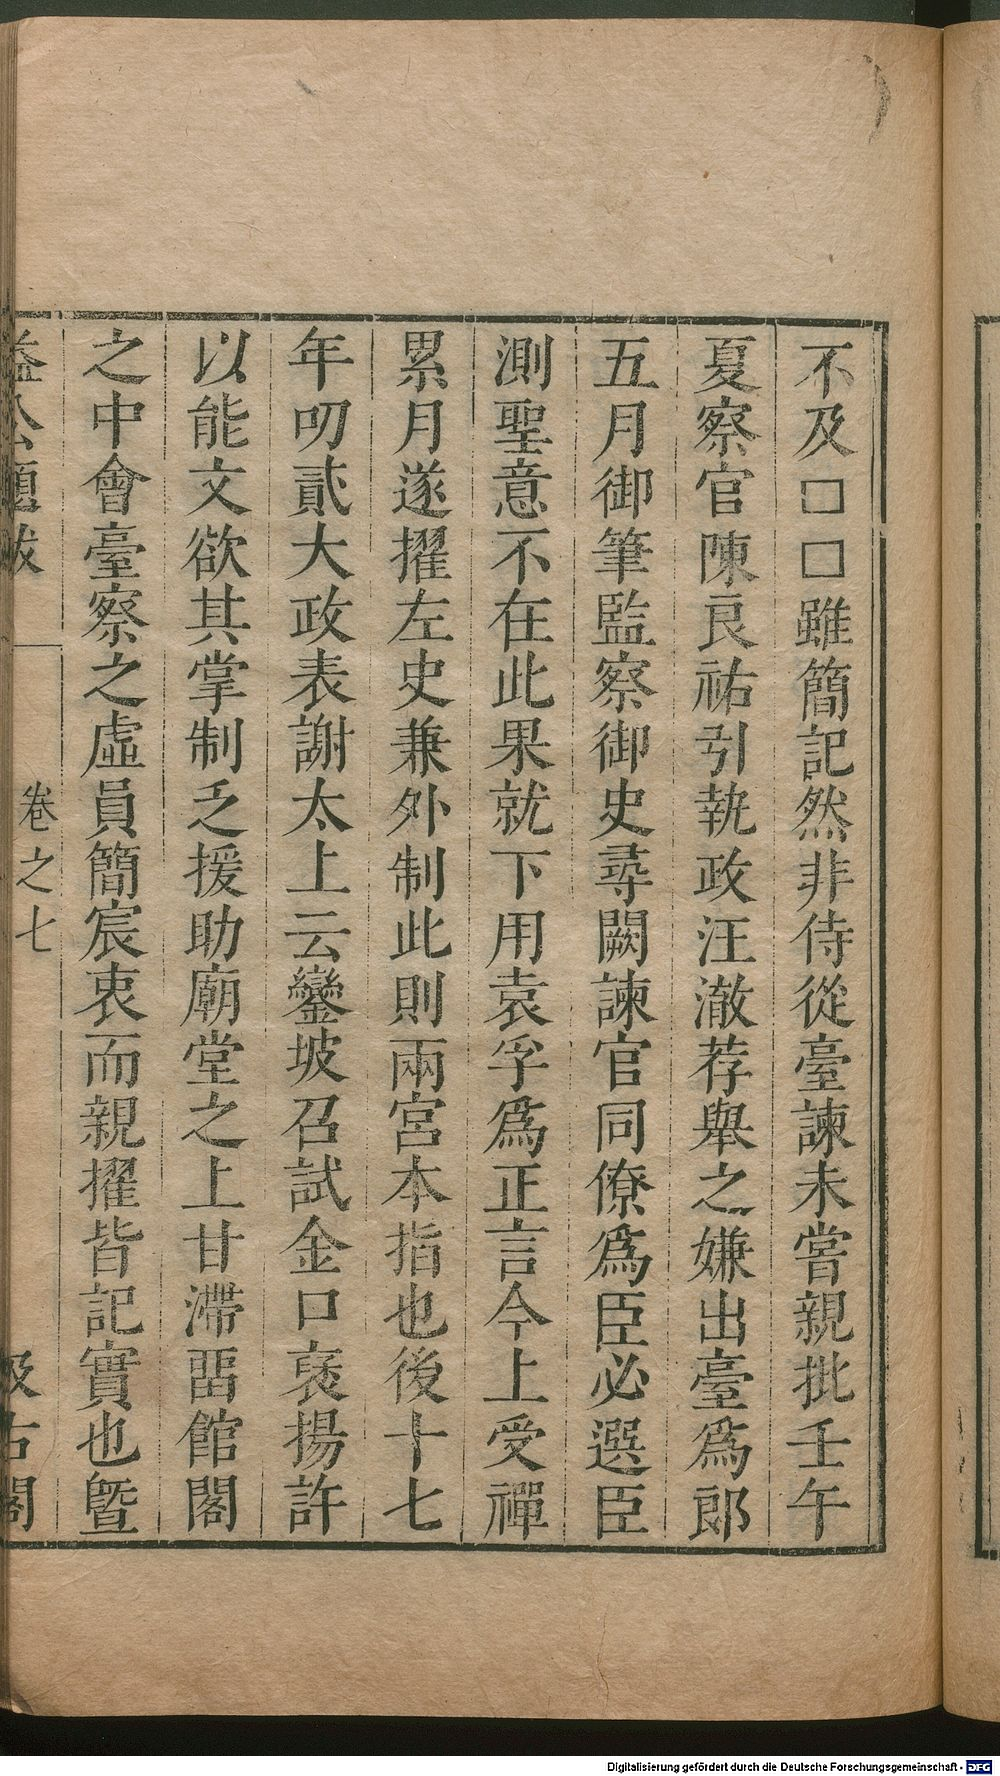 不及□□雖簡記然非侍從臺諫未嘗親批壬午
夏察官陳良祐引執政汪澈荐舉之嫌出臺爲郎
五月御筆監察御史尋闕諫官同僚爲臣必選臣
測聖意不在此果就下用袁孚爲正言今上受禪
累月遂擢左史兼外制此則兩宮本指也後十七
年叨貳大政表謝太上云鑾坡召試金口褒揚許
以能文欲其掌制乏援助廟堂之上甘滯畱館閣
之中會臺察之虛員簡宸衷而親擢皆記實也曁
益公題跋 卷之七 汲古閣
Digitalisierung gefördert durch die Deutsche Forschungsgemeinschaft - DFG